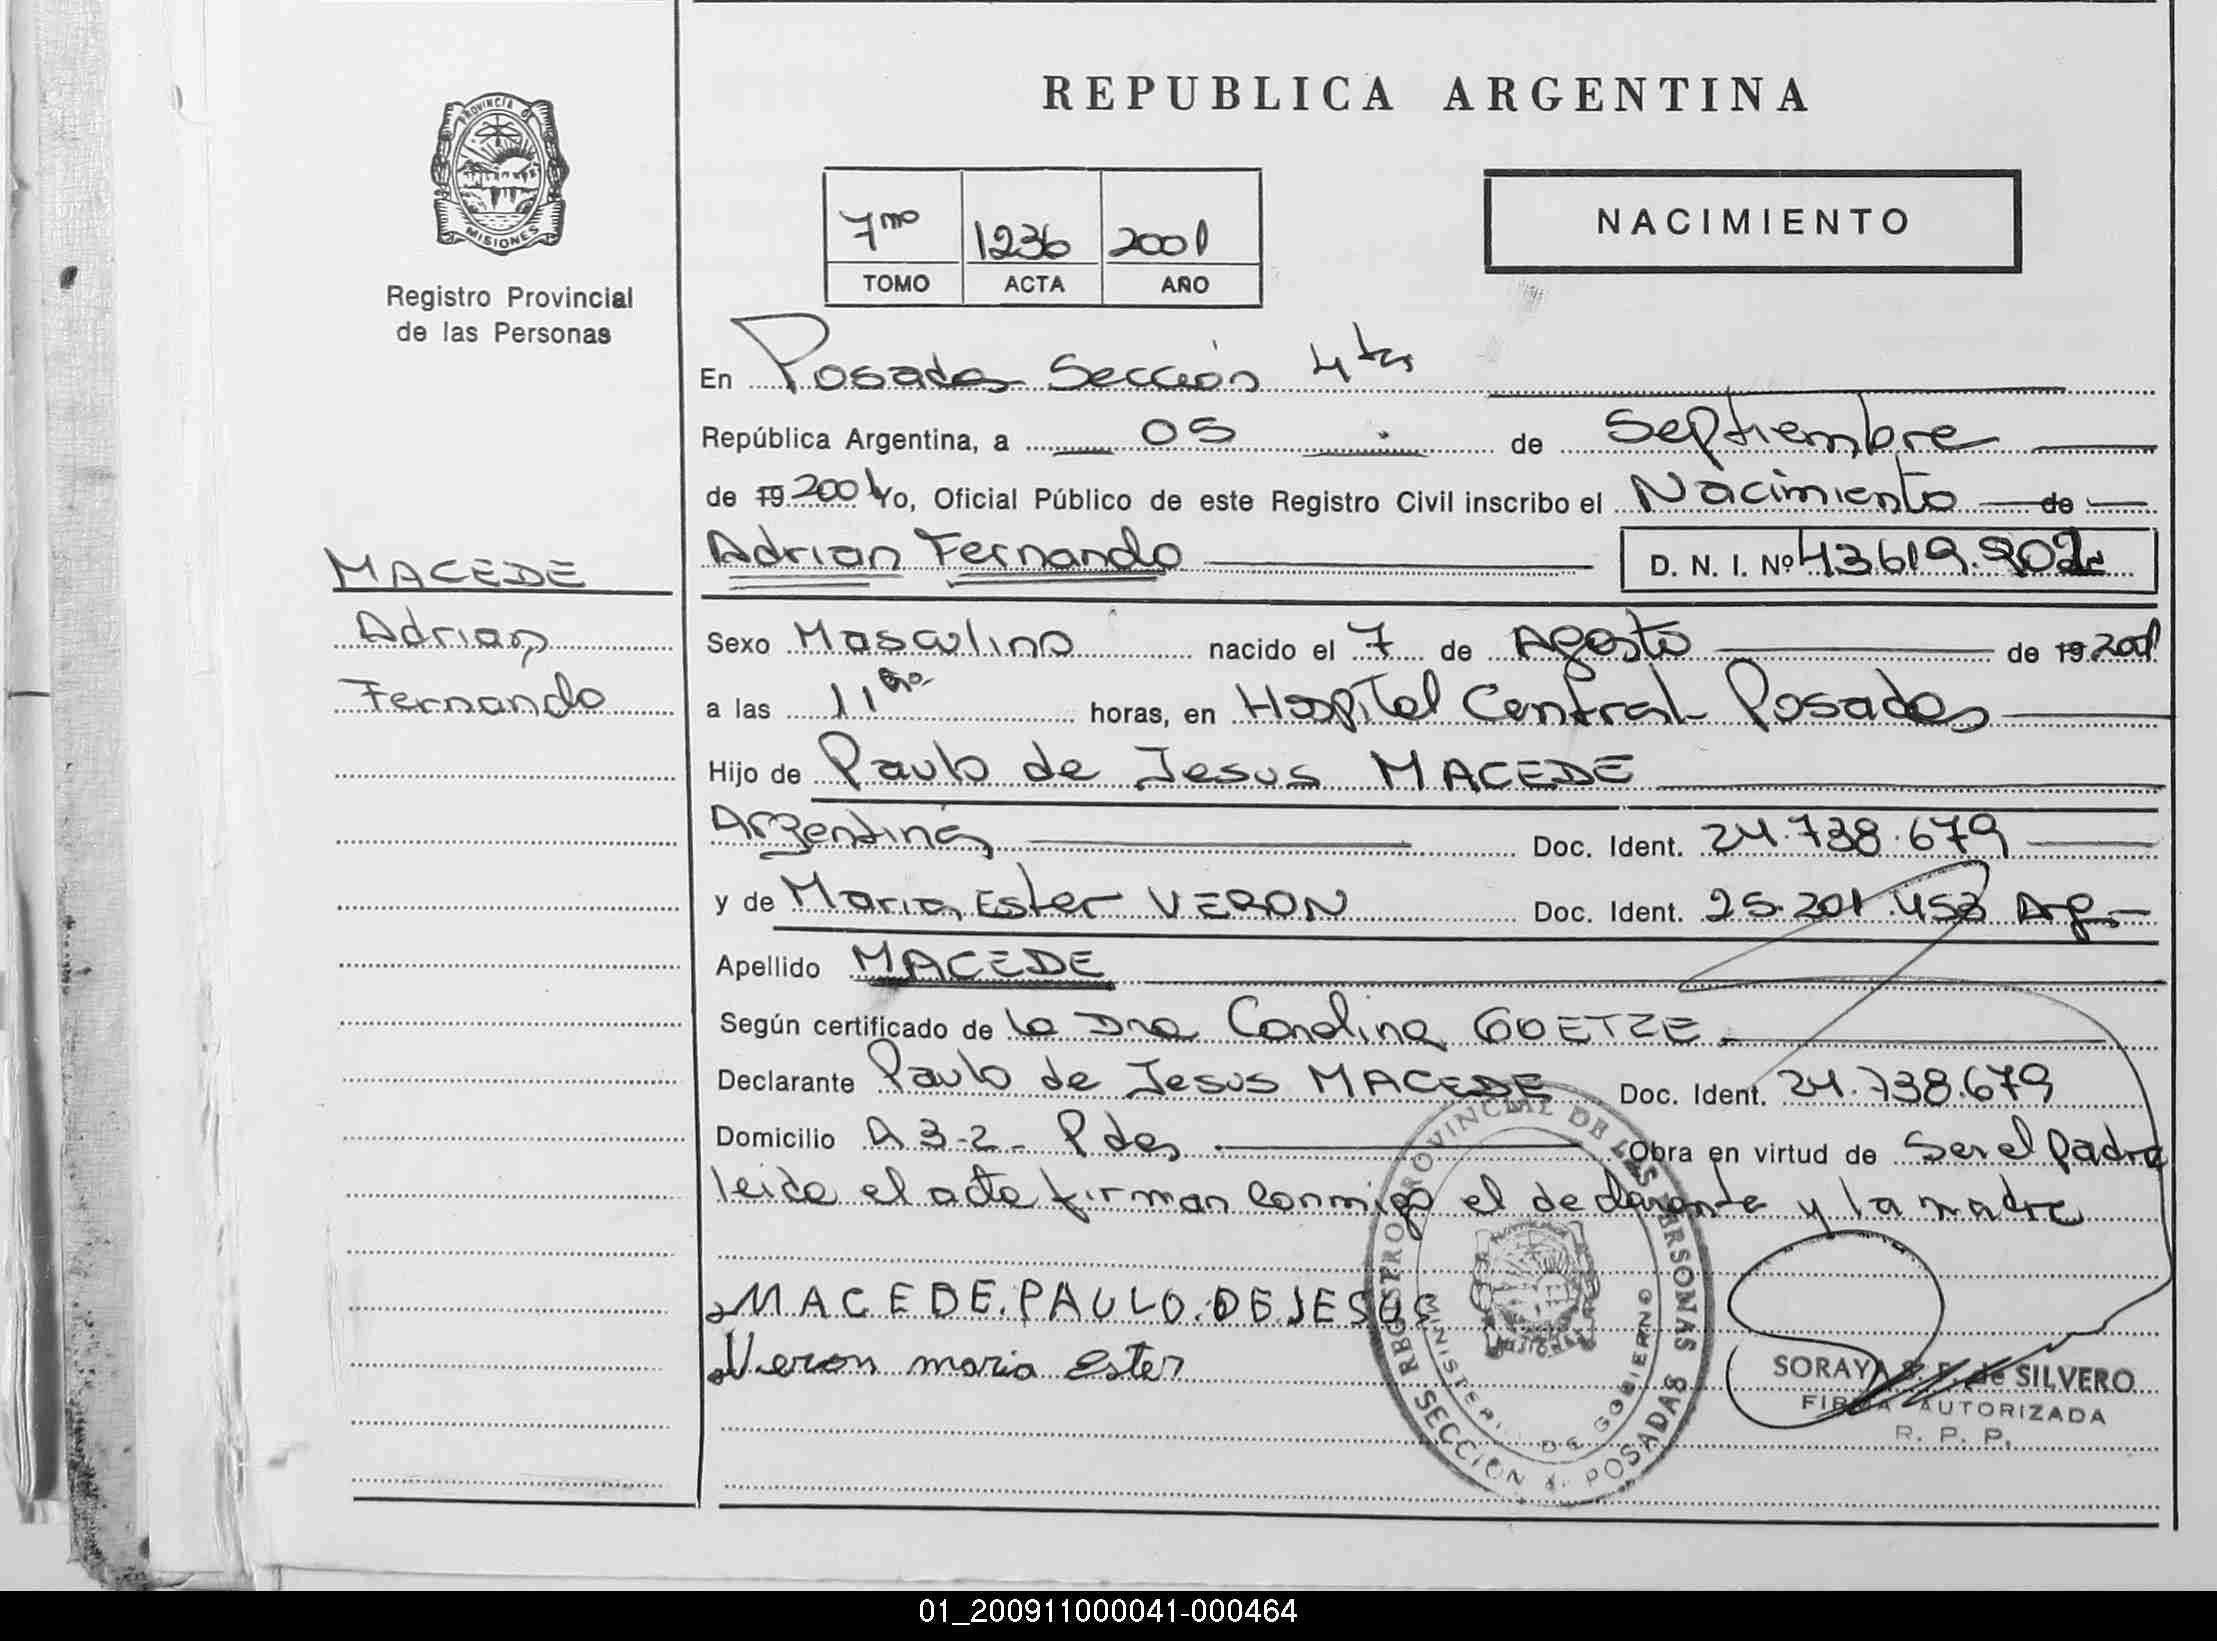 REPUBLICA ARGENTINA
PROVINCIA DE
MISIONES
Registro Provincial
de las Personas
7mo 1236 2001
TOMO ACTA AÑO
NACIMIENTO
En Posadas Sección 4ta
República Argentina, a 05 de Septiembre
de 19 2001 Yo, Oficial Público de este Registro Civil inscribo el Nacimiento de
MACEDE
Adrian
Fernando
Adrian Fernando D. N. I. Nº 43.619.902
Sexo Masculino nacido el 7 de Agosto de 19 2001
a las 11 horas, en Hospital Central Posadas
Hijo de Paulo de Jesus MACEDE
Argentina Doc. Ident. 24.738.679
y de Maria Ester VERON Doc. Ident. 25.201.453 Arg.
Apellido MACEDE
Según certificado de la Dra Carolina GOETZE
Declarante Paulo de Jesus MACEDE Doc. Ident. 24.738.679
Domicilio A 3-2- Pdas Obra en virtud de Ser el padre
leida el acta firman conmigo el declarante y la madre
MACEDE.PAULO.DE JESUS
Veron maria Ester
REGISTRO PROVINCIAL DE LAS PERSONAS
MINISTERIO DE GOBIERNO
SECCION 4. POSADAS
SORAYA S. F. de SILVERO
FIRMA AUTORIZADA
R. P. P.
01_200911000041-000464